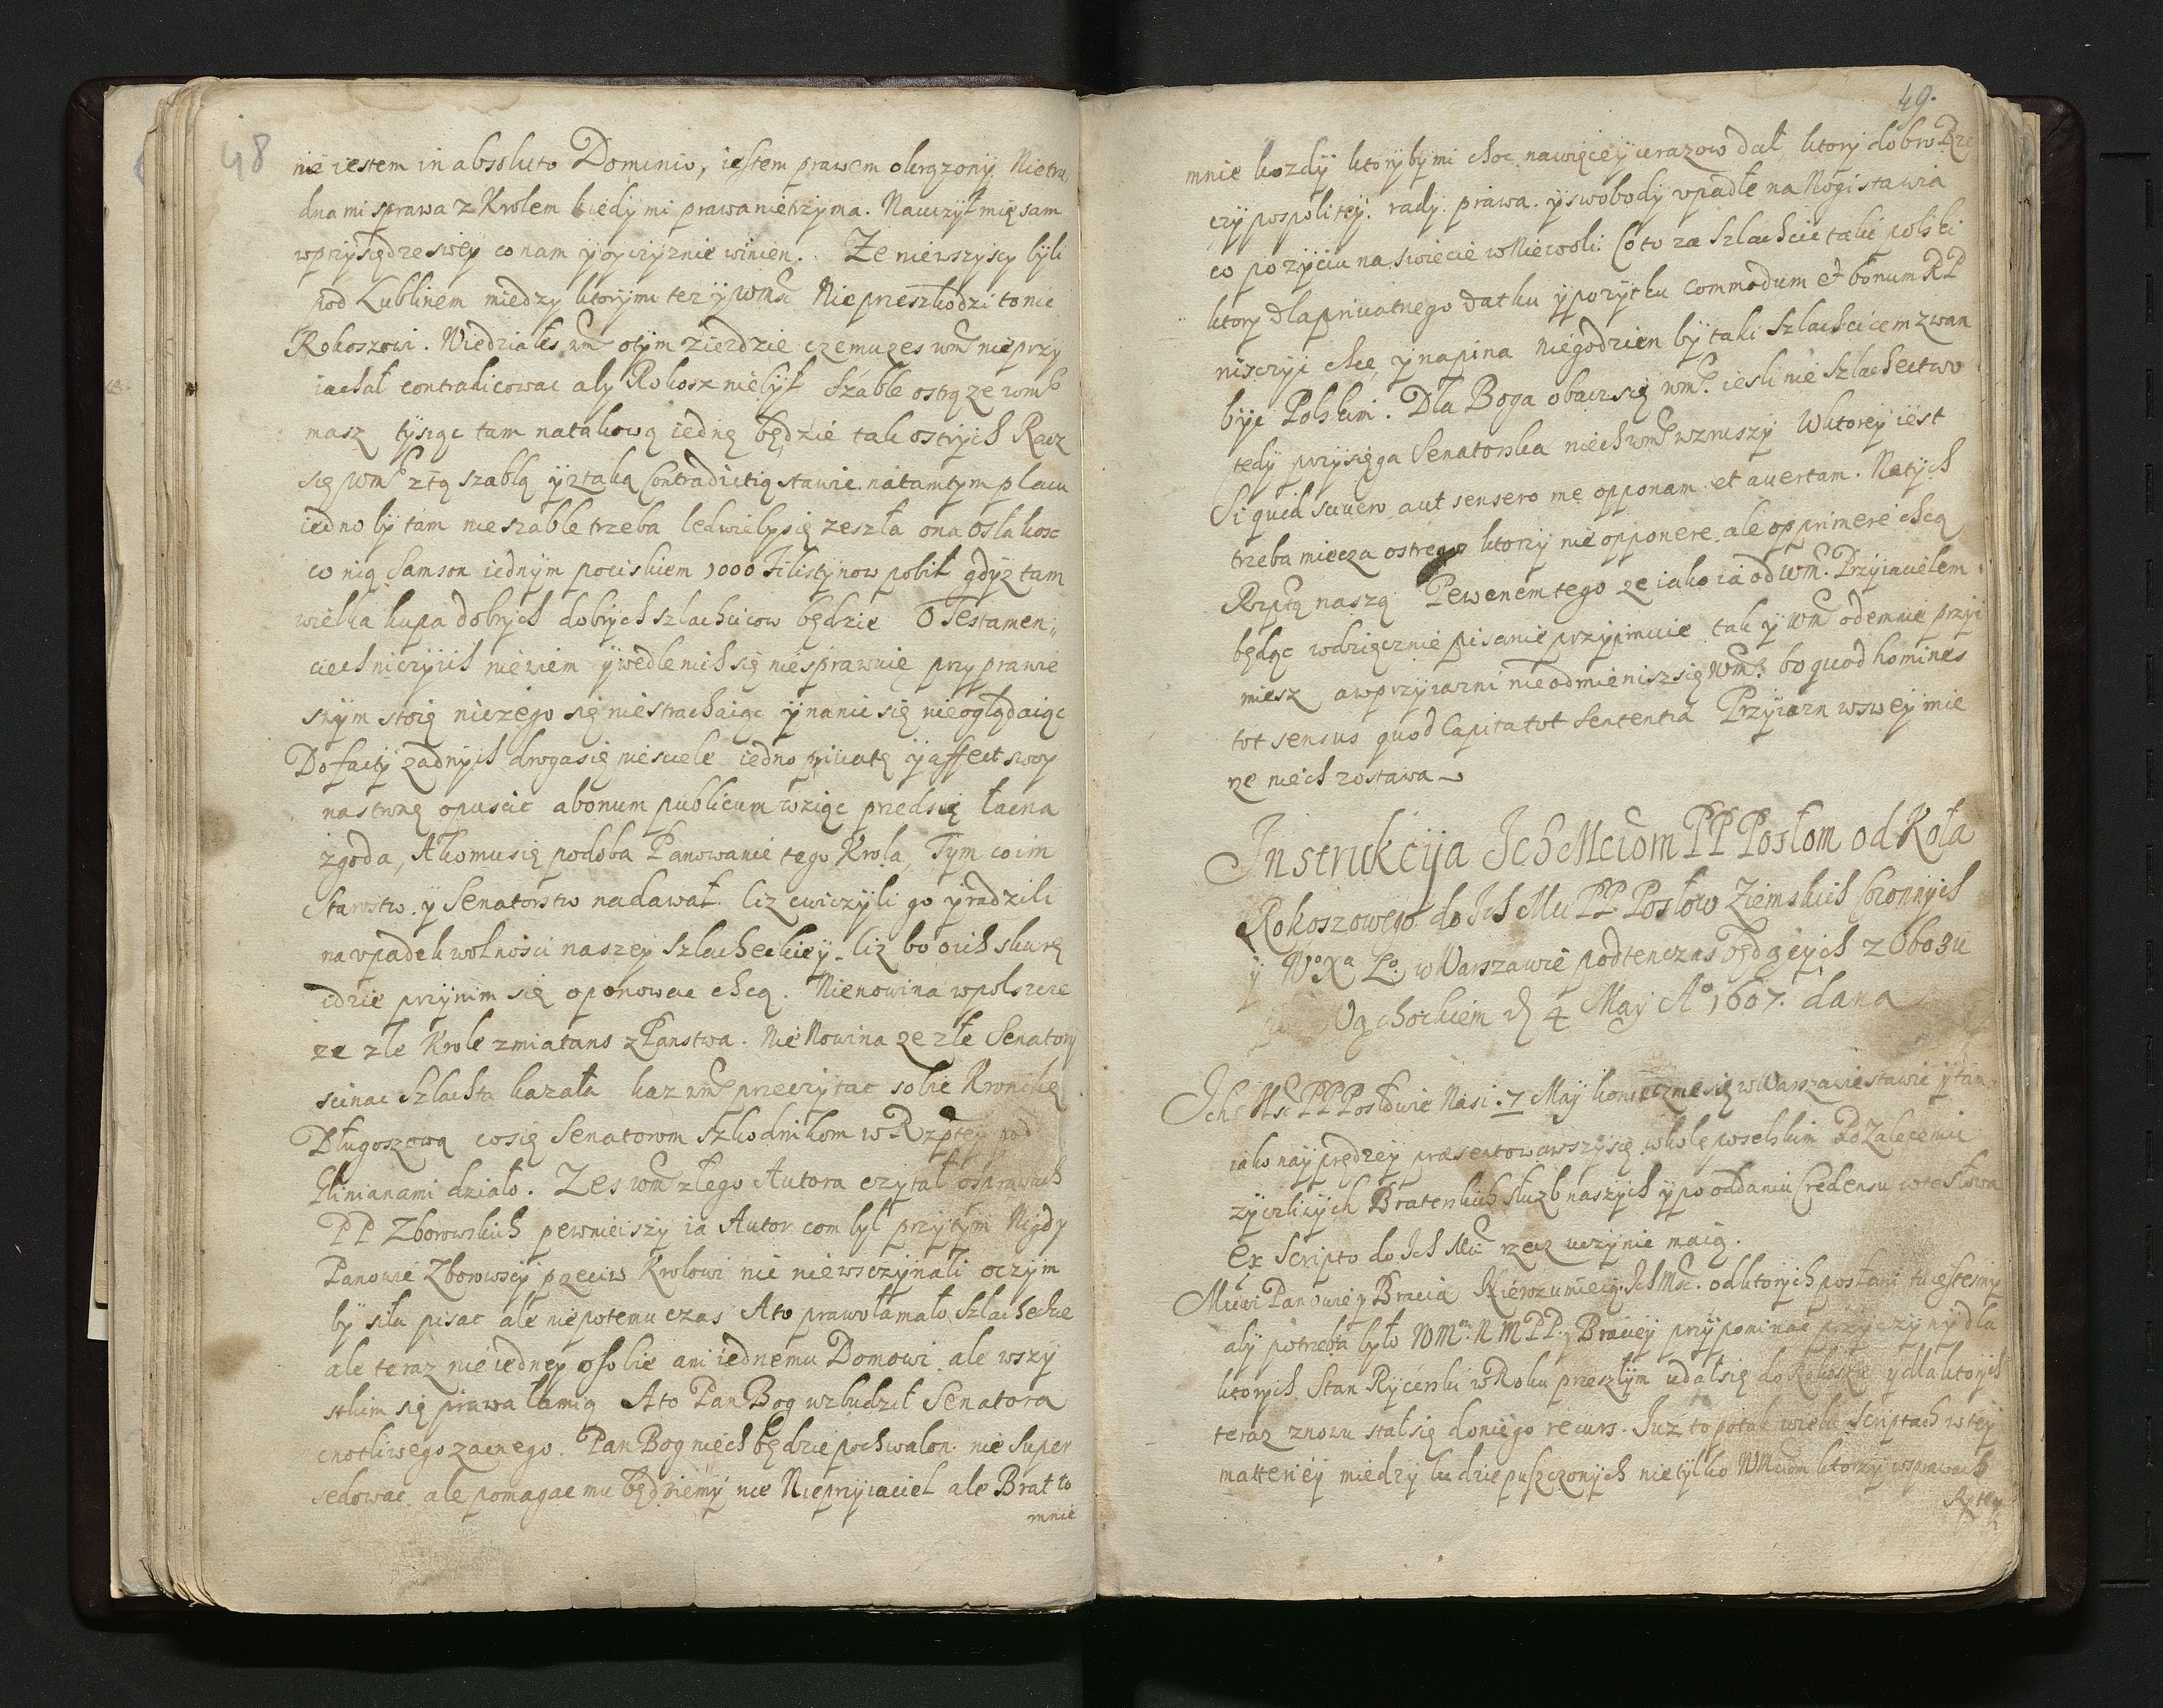 48
nie iestem in absoluto Dominio, iestem prawem okrązony Nietru
dna mi sprawa z Krolem kiedy mi prawa nietrzyma. Nauczył mię sam
w przysiędze swey co nam y oyczyznie winien. Ze niewszyscy byli
pod Lublinem miedzy ktorymi tez y WMsc Nieprzeszkodzi to nic
Rokoszowi. Wiedziałes wmc otym zieździe czemuzes wmc nie przy
iachał contradicowac aby Rokosz niebył Szable ostrą ze wmc
masz tysiąc tam natakową iednę będzie tak ostrych Racz
się wmc z tą szablą y z taką Contradictią stawic natamtym placu
iedno by tam nie szable trzeba ledwieby się zeszła ona osla kosc
co nią Samson iednym pociskiem 1000 Filistynow pobił gdyz tam
wielka kupa dobrych dobrych szlachcicow będzie O Testamen
ciech niczyich niewiem y wedle nich się niesprawuię przy prawie
swym stoię niczego się niestrachaiąc y nanic się nieoglądaiąc
Do facty zadnych droga się niesciele iedno priuatę y affect swoy
na stronę opuscic a bonum publicum wziąc przedsię łacna
zgoda, A komu się podoba Panowanie tego Krola, Tym co im
Starostw y Senatorstw nadawał. Ciz cwiczyli go y radzili
na vpadek wolnosci naszey Szlacheckiey. Ciz bo o ich skurę
idzie przy nim się oponowac chcą. Nienowina w polszcze
ze złe Krole zmiatano z Panstwa. Nie Nowina ze złe Senatory
scinac Szlachta kazała kaz wmc przeczytac sobie Kronikę
Długoszową co się Senatorom szkodnikom w Rzptey pod
Glinianami działo. Zes wmc złego Autora czytał o sprawach
PP Zborowskich pewnieiszy ia Autor com był przytym Nigdy
Panowie Zborowscy przeciw Krolowi nic niewszczynali oczym
by siła pisac ale niepotemu czas A to prawo łamało Szlacheckie
ale teraz nie iedney osobie ani iednemu Domowi ale wszy
stkim się prawa łamią A to Pan Bog wzbudził Senatora
cnotliwego zacnego. Pan Bog niech będzie pochwalon nie super
sedowac ale pomagac mu będziemy nie Nieprzyiaciel ale Brat to
mnie
49.
mnie kozdy ktoryby mi choc nawięcey urazow dał, ktory dobro Rze
czy pospolitey. rady. prawa. y swobody vpadłe na Nogi stawia
co po zyciu na swiecie w Niewoli. Co to za Szlachcic taki polski
ktory dla priuatnego datku y pozytku commodum et bonum RP
niszczyc chce y napina niegodzien by taki Szlachcicem zwan
byc Polskim. Dla Boga obacz się wmc. iesli nie Szlachectwo
tedy przysięga Senatorska niech wmc wzruszy W ktorey iest
Si quid scivero aut sensero me opponam et auertam. Natych
trzeba miecza ostrego ktorzy nie opponere ale opprimere chcą
Rzptą naszą Pewenem tego ze iako ia od wmc. Przyiacielem
będąc wdzięcznie pisanie przyimuie tak y wmc odemnie przyi
miesz a w przyiazni nie odmienisz się Wmc. bo quod homines
tot sensus quod Capita tot Sententia Przyiazn w swey mie
rze niech zostawa
Instrukcija Ich Mciom PP Posłom od Koła
Rokoszowego do Ich Mci PP Posłow Ziemskich Coronnych
y Wo Xa Lo w Warszawie podtenczas będących z Obozu
Vgchockiem d 4 May Ao 1607. dana
Ich Msc PP Posłowie Nasi. 7 May koniecznie się w Warszawie stawic y tam
iako nayprędzey praesentowawszy się w kole poselskim Po Zaleceniu
zyczliwych Braterskich słuzb naszych y po oddaniu Credensu w te słowa
Ex Scripto do Ich Mci rzecz uczynic maią.
Mciwi Panowie y Bracia Nierozumieią Ich Msc. od ktorych posłani tu iestesmy
aby potrzeba było WMm. N M PP. y Braciey przypominac przyczyny dla
ktorych Stan Rycerski w Roku przeszłym udał się do Rokoszu y dla ktorych
teraz znowu stał się doniego recurs. Iuz to po tak wielu Scriptach w tey
matteriey miedzy ludzie puszczonych nie tylko WMciom ktorzy w sprawach
Rptey